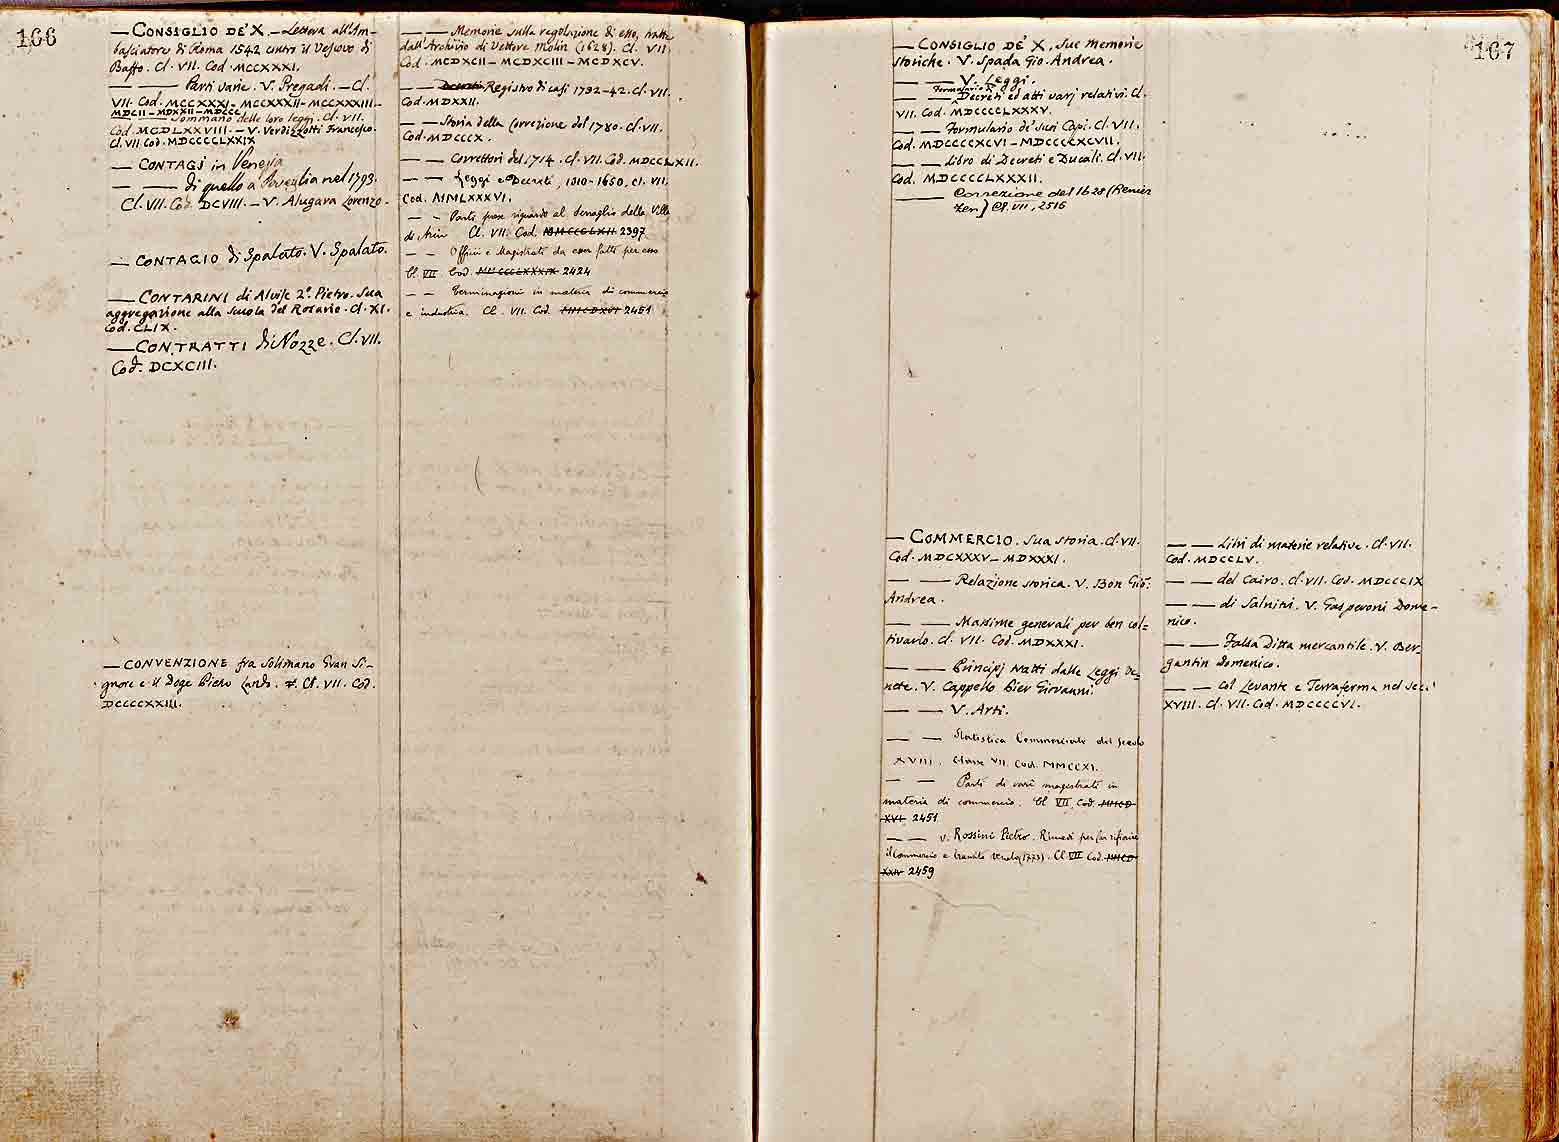 166
— CONSIGLIO DE' X. — Lettera all'Am-
basciatore di Roma 1542 contro il Vescovo di
Baffo. Cl. VII. Cod. MCCXXXI.
— — Parti varie. V. Pregadi. — Cl.
VII. Cod. MCCXXXI — MCCXXXII — MCCXXXIII —
MDCII — MDXXII — MDCCL
— Sommario delle loro leggi. Cl. VII.
Cod. MCDLXXVIII. — V. Verdizzotti Francesco.
Cl. VII Cod. MDCCCCLXXIX
— CONTAGI in Venezia
— — di quello a nel 1793.
Cl. VII. Cod. DCVIII. — V. Alugara Lorenzo.
— CONTAGIO di Spalato. V. Spalato.
— CONTARINI di Alvise 2º Pietro. Sua
aggregazione alla scuola del Rosario. Cl. XI.
Cod. CLIX.
— CONTRATTI di Nozze. Cl. VII.
Cod. DCXCIII.
— CONVENZIONE fra Solimano Gran Si-
gnore e il Doge Piero Lando. Cl. VII. Cod.
DCCCCXXIII.
— — Memorie sulla regolazione di esso, tratte
dall'Archivio di Vettore Molin (1628). Cl. VII.
Cod. MCDXCII — MCDXCIII — MCDXCV.
— — Decreti Registro di casi 1732-42. Cl. VII.
Cod. MDXXII.
— — Storia della Correzione del 1780. Cl. VII.
Cod. MDCCCX.
— — Correttori del 1714. Cl. VII. Cod. MDCCLXII.
— — Leggi e Decreti, 1310-1650. Cl. VII.
Cod. MMLXXXVI.
— — Parti prese riguardo al della Villa
di Cl. VII. Cod. MMCCCLXII 2397
— — Offici e Magistrati da esser fatti per esso
Cl. VII Cod. 2424
— — Terminazioni in materia di commercio
e industria. Cl. VII. Cod. MMCDXVI 2451
167
— CONSIGLIO DE' X. Sue memorie
storiche. V. Spada Gio. Andrea.
— — V. Leggi.
Formulario
— — Decreti ed atti varj relativi. Cl.
VII. Cod. MDCCCCLXXXV.
— — Formulario de' suoi Capi. Cl. VII.
Cod. MDCCCCXCVI — MDCCCCXCVII.
— — Libro di Decreti e Ducali. Cl. VII.
Cod. MDCCCCLXXXII.
— Correzione del 1628 (Renier
Zen) Cl. VII, 2516
— COMMERCIO. Sua storia. Cl. VII.
Cod. MDCXXXV — MDXXXI.
— — Relazione storica. V. Bon Gio:
Andrea.
— — Massime generali per ben col=
tivarlo. Cl. VII. Cod. MDXXXI.
— — Principj tratti dalle Leggi Ve=
nete. V. Cappello Pier Giovanni.
— — V. Arti.
— — Statistica Commerciale del secolo
XVIII. Classe VII. Cod. MMCCXI.
— — Parti di varii magistrati in
materia di commercio. Cl. VII. Cod. MMCD
XVI 2451
— — V. Rossini Pietro. Rimedi per far rifiorire
il Commercio e transito Veneto (1773). Cl. VII Cod. MMCD
XXIV 2459
— — Libri di materie relative. Cl. VII.
Cod. MDCCLV.
— — del Cairo. Cl. VII. Cod. MDCCCIX
— — di Salnitri. V. Gasperoni Dome-
nico.
— — Falsa Ditta mercantile. V. Ber-
gantin Domenico.
— — col Levante e Terraferma nel sec.
XVIII. Cl. VII. Cod. MDCCCCVI.